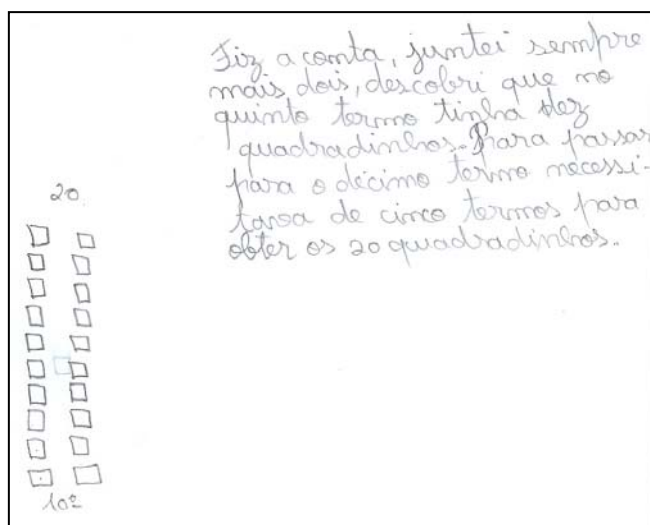 Fiz a conta, juntei sempre
mais dois, descobri que no
quinto termo tinha dez
quadradinhos. Para passar
para o décimo termo necessi-
tava de cinco termos para
obter os 20 quadradinhos..
20
10º